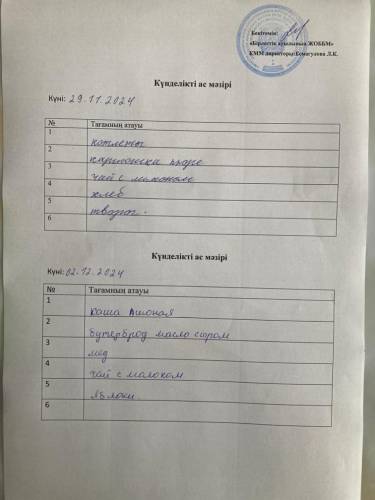 Бекітемін:
«Бірлестік ауылының ЖОББМ»
КММ директоры: Л.К.
Күнделікті ас мәзірі
Күні: 29.11.2024
№ Тағамның атауы
1 котлеты
2 пюре
3 чай с молоком
4 хлеб
5 творог.
6
Күнделікті ас мәзірі
Күні: 02.12.2024
№ Тағамның атауы
1 каша
2 бутерброд масло сыром
3 мед
4 чай с молоком
5 яблоки
6